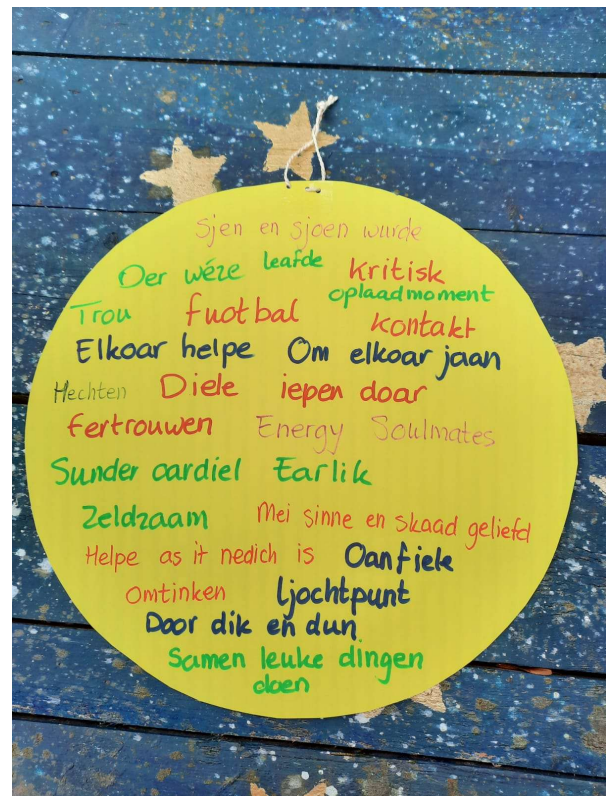 Sjen en sjoen wurde
Oer wéze leafde Kritisk
oplaadmoment
Trou Fuotbal Kontakt
Elkoar helpe Om elkoar jaan
Hechten Diele iepen doar
Fertrouwen Energy Soulmates
Sunder oardiel Earlik
Zeldzaam Mei sinne en skaad geliefd
Helpe as it nedich is Oanfiele
Omtinken ljochtpunt
Door dik en dun
Samen leuke dingen
doen